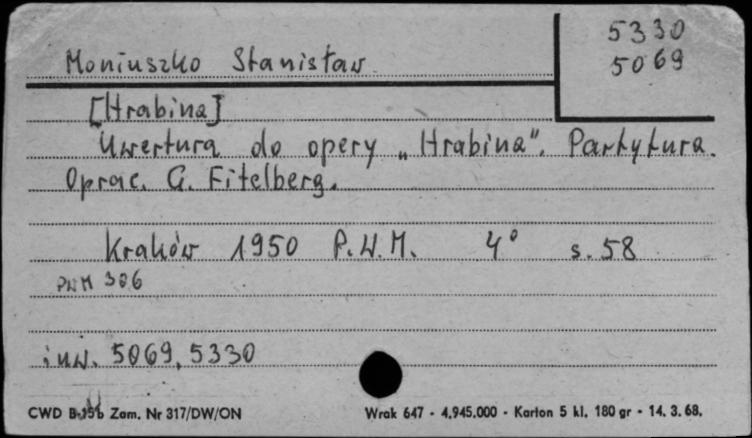 5330
5069
Moniuszko Stanisław
[Hrabina]
Uwertura do opery „Hrabina". Partytura.
Oprac. G. Fitelberg.
Kraków 1950 P.W.M. 4° s. 58
PWM 306
inw. 5069, 5330
CWD Zam. Nr 317/DW/ON Wrak 647 - 4.945.000 - Karton 5 kl. 180 gr - 14. 3. 68.